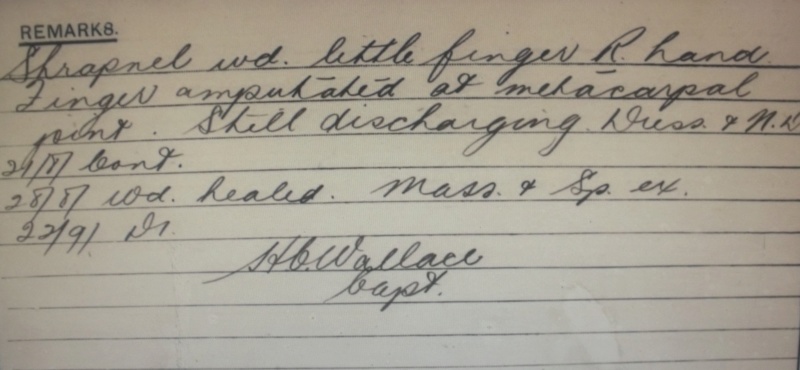 REMARKS.
Shrapnel wd. little finger R. hand.
Finger amputated at metacarpal
joint. Still discharging. Dress. & N.D
21/8/ Cont.
28/8/ wd. healed. Mass. & Sp. ex.
22/9/ D1.
H.C. Wallace
Capt.